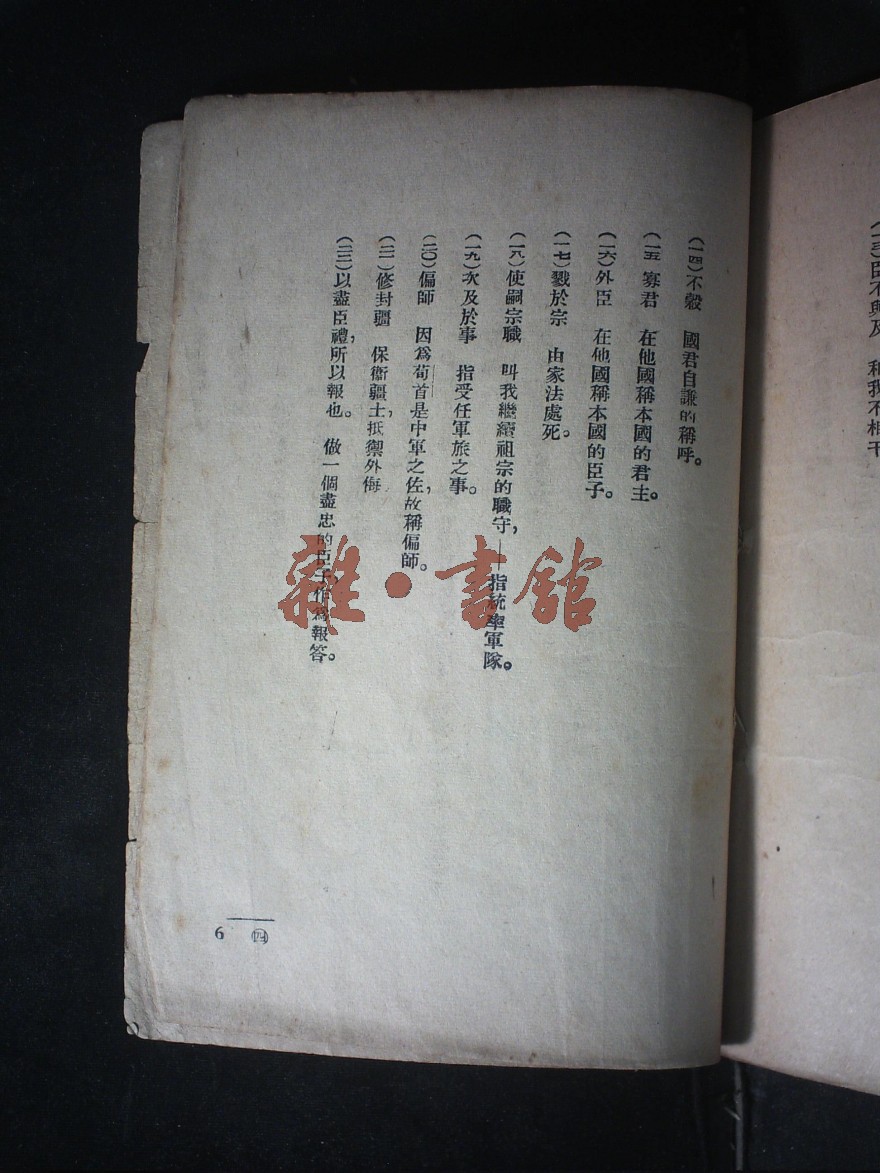 (一三)臣不與及　和我不相干
(一四)不穀　國君自謙的稱呼。
(一五)寡君　在他國稱本國的君主。
(一六)外臣　在他國稱本國的臣子。
(一七)戮於宗　由家法處死。
(一八)使嗣宗職　叫我繼續祖宗的職守，——指統率軍隊。
(一九)次及於事　指受任軍旅之事。
(二〇)偏師　因爲荀首是中軍之佐，故稱偏師。
(二一)修封疆　保衞疆土，抵禦外侮
(二二)以盡臣禮，所以報也。　做一個盡忠的臣子作爲報答。
雜·書館
㊃ 6